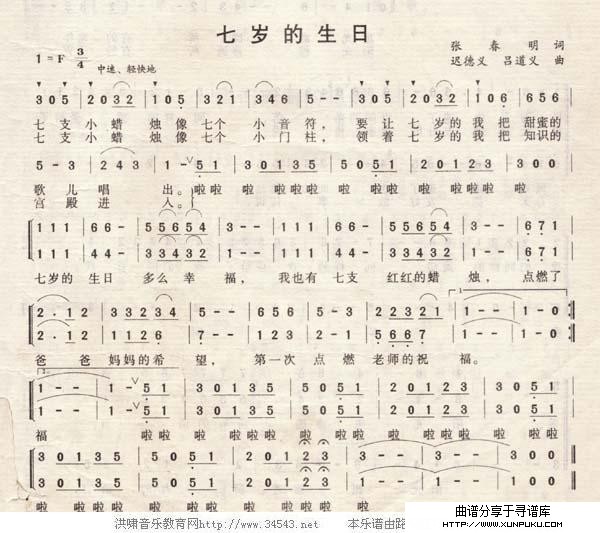 七岁的生日
张春明 词
1=F 3/4 迟德义 吕道义 曲
中速、轻快地
305 | 2032 | 105 | 321 | 346 | 5-- | 305 | 2032 | 106 | 656
七支小蜡烛像七个小音符，要让七岁的我把甜蜜的
七支小蜡烛像七个小门柱，领着七岁的我把知识的
5-3 | 243 | 1-∨51 | 30135 | 30151 | 30135 | 30151
歌儿唱出。啦啦啦啦啦啦啦啦啦啦啦啦
宫殿进入。
111 | 66- | 55654 | 3-- | 111 | 66- | 55654 | 3-- | 671
111 | 66- | 33432 | 1-- | 111 | 66- | 33432 | 1-- | 671
七岁的生日多么幸福，我也有七支红红的蜡烛，点燃了
2·12 | 33234 | 5-- | 323 | 5-3 | 22321 | 1-- | 1-0
2·12 | 1126 | 7-- | 123 | 2-1 | 5667 | 1-- | 1-0
爸爸妈妈的希望，第一次点燃老师的祝福。
1-- | 1-∨51 | 30135 | 30151 | 30135 | 30151
1-- | 1-∨51 | 30135 | 30151 | 30135 | 30151
福啦啦啦啦啦啦啦啦啦啦啦啦
30135 | 30151 | 30135 | 20123 | 1-- | 1-- | 100
30135 | 30151 | 30135 | 20123 | 1-- | 1-- | 100
洪啸音乐教育网http://www.34543.net 本乐谱由路
曲谱分享于寻谱库
HTTP://WWW.XUNPUKU.COM